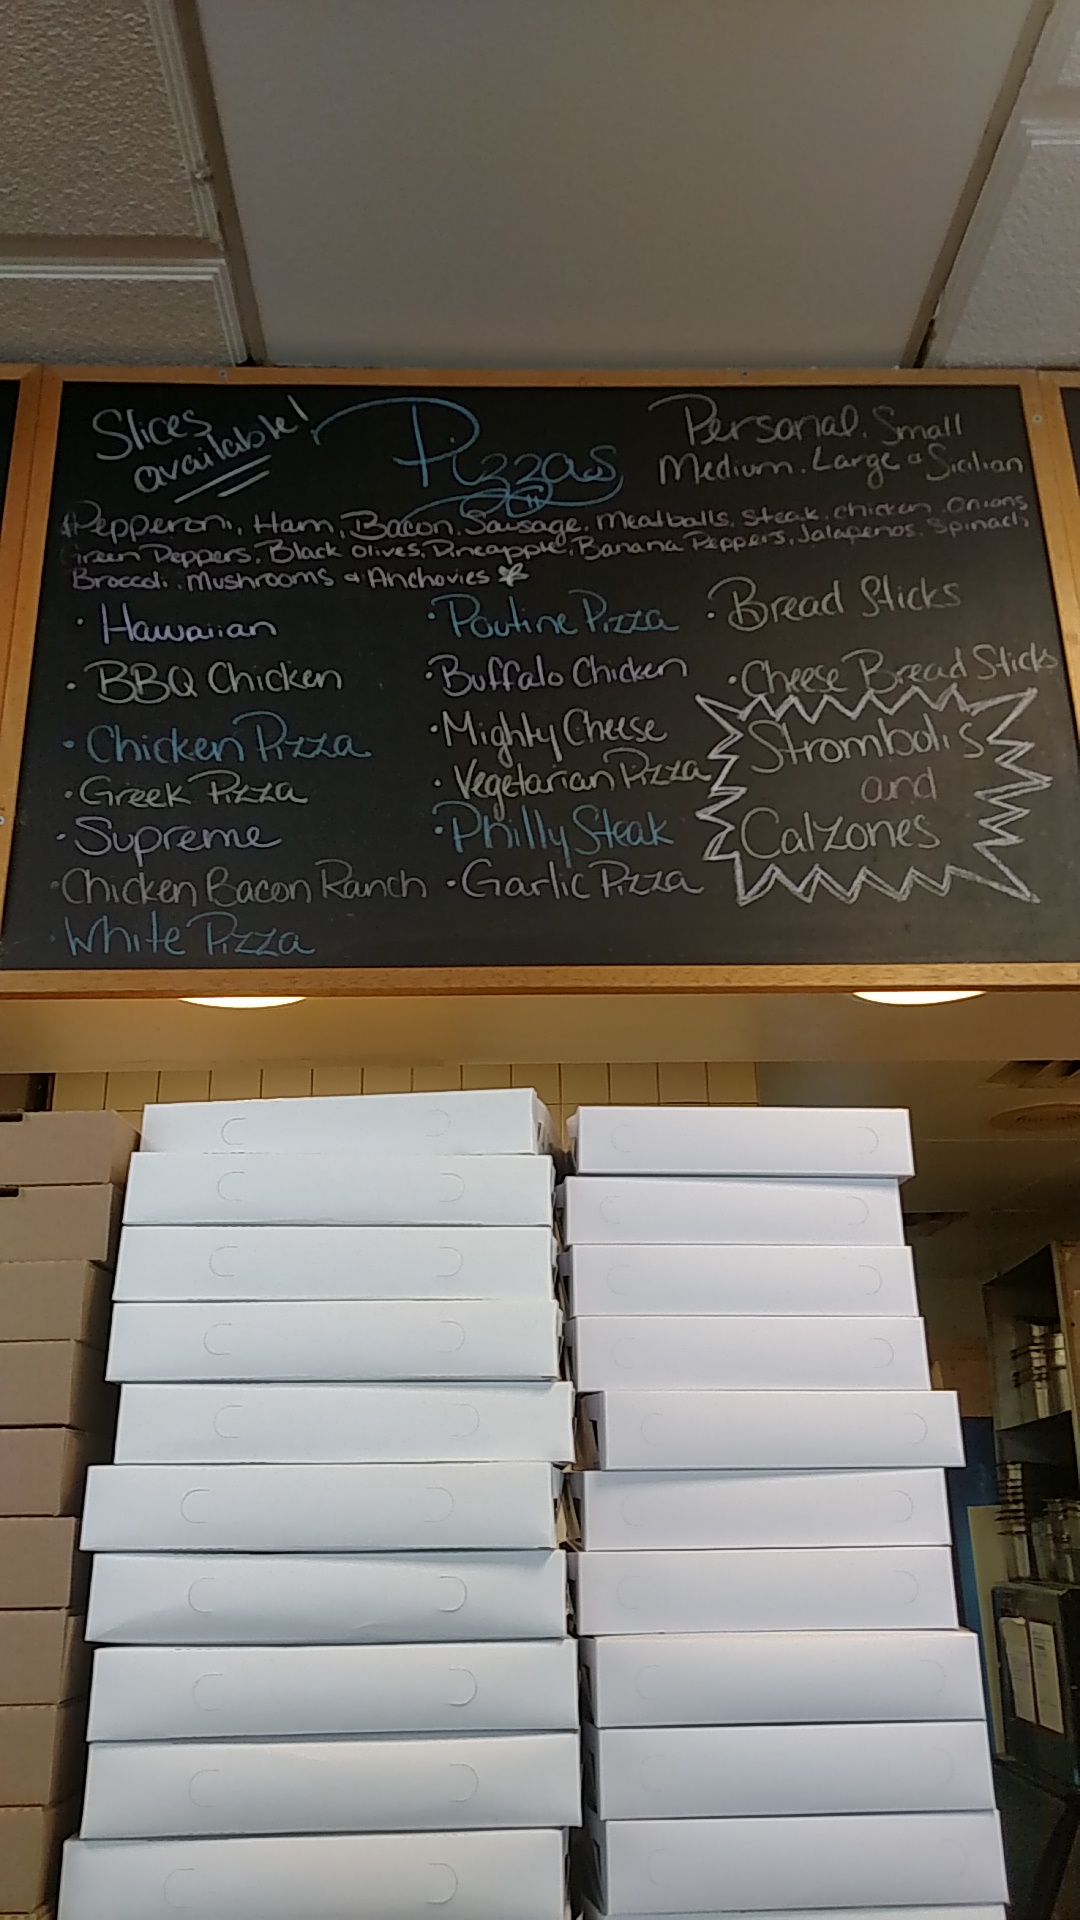 Slices
available!
Pizzas
Personal. Small
Medium. Large & Sicilian
Pepperoni, Ham, Bacon, Sausage, Meatballs, Steak, chicken, Onions
Green Peppers, Black Olives, Pineapple, Banana Peppers, Jalapenos, Spinach
Broccoli, Mushrooms & Anchovies
· Hawaiian
· BBQ Chicken
· Chicken Pizza
· Greek Pizza
· Supreme
· Chicken Bacon Ranch
· White Pizza
· Poutine Pizza
· Buffalo Chicken
· Mighty Cheese
· Vegetarian Pizza
· Philly Steak
· Garlic Pizza
· Bread Sticks
· Cheese Bread Sticks
Strombolis
and
Calzones